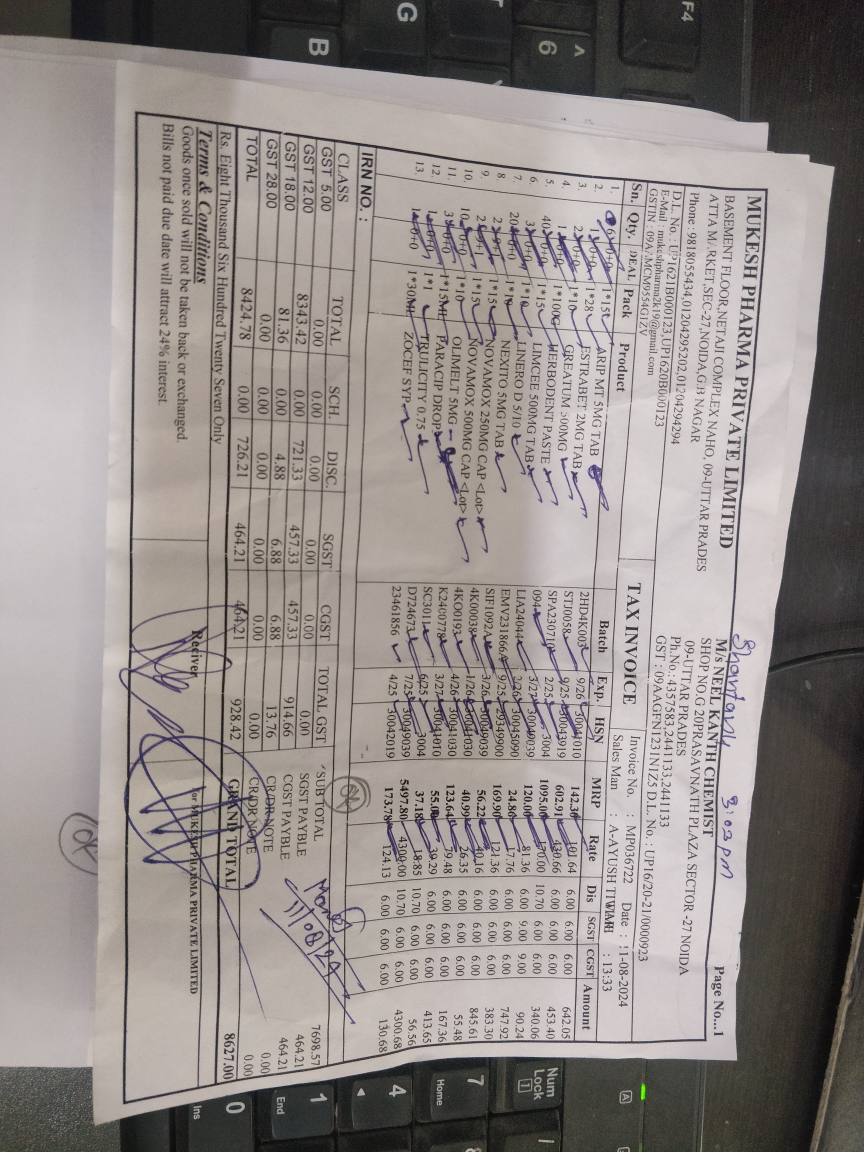 MUKESH PHARMA PRIVATE LIMITED
BASEMENT FLOOR,NETAJI COMPLEX NAHO, 09-UTTAR PRADES
ATTA MARKET,SEC-27,NOIDA,G.B NAGAR
Phone : 9818055434,01204295202,01204294294
D.L. No. : UP1621B000123,UP1620B000123
E-Mail : mukeshpharma2k19@gmail.com
GSTIN : 09AAMCM9554G1ZV
TAX INVOICE
3:03 pm
Page No...1
M/s NEEL KANTH CHEMIST
SHOP NO.G 20PRASAVNATH PLAZA SECTOR -27 NOIDA
09-UTTAR PRADES
Ph.No.:4357583,2441133,2441133
GST : 09AAGFN1231N1Z5 D.L. No. : UP16/20-21/0000923
Invoice No. : MP036722 Date : 11-08-2024
Sales Man : A-AYUSH TIWARI : 13:33
Sn. Qty. DEAL Pack Product Batch Exp. HSN MRP Rate Dis SGST CGST Amount
1. 1*15 ARIP MT 5MG TAB 2HD4K003 9/26 30041010 142.30 101.64 6.00 6.00 6.00 642.05
2. 1*28 ESTRABET 2MG TAB STJ0058 9/25 30043919 602.91 430.66 6.00 6.00 6.00 453.40
3. 1*10 GREATUM 500MG SPA230710 2/25 3004 1095.00 170.00 10.70 6.00 6.00 340.06
4. 1*100G HERBODENT PASTE 094 3/27 120.00 81.36 6.00 9.00 9.00 90.24
5. 1*15 LIMCEE 500MG TAB LIA24044 2/26 30045090 24.80 17.76 6.00 6.00 6.00 747.92
6. 1*10 LINERO D 5/10 EMV231866A 9/25 29349900 169.90 121.36 6.00 6.00 6.00 383.30
7. 1*10 NEXITO 5MG TAB SIF1092A 3/26 30049039 56.22 40.16 6.00 6.00 6.00 845.61
8. 1*15 NOVAMOX 250MG CAP <Lot> 4K00038 1/26 30041030 40.99 26.35 6.00 6.00 6.00 55.48
9. 1*15 NOVAMOX 500MG CAP <Lot> 4KO0193 4/26 30041030 123.64 79.48 6.00 6.00 6.00 167.36
10. 1*10 OLIMELT 5MG K2400778 3/27 30041010 55.00 39.29 6.00 6.00 6.00 413.65
11. 1*15ML PARACIP DROP SC3011 6/25 3004 37.18 6.00 6.00 56.56
12. 1*1 TRULICITY 0.75 D724673 7/25 30049039 5497.80 4300.00 10.70 6.00 6.00 4300.68
13. 1*30ML ZOCEF SYP 23461856 4/25 30042019 173.78 124.13 6.00 6.00 6.00 130.68
IRN NO. :
OK
CLASS TOTAL SCH. DISC. SGST CGST TOTAL GST
GST 5.00 0.00 0.00 0.00 0.00 0.00 0.00
GST 12.00 8343.42 0.00 721.33 457.33 457.33 914.66
GST 18.00 81.36 0.00 4.88 6.88 6.88 13.76
GST 28.00 0.00 0.00 0.00 0.00 0.00 0.00
TOTAL 8424.78 0.00 726.21 464.21 464.21 928.42
SUB TOTAL 7698.57
SGST PAYBLE 464.21
CGST PAYBLE 464.21
CR/DR NOTE 0.00
CR/DR NOTE 0.00
11/08/24
Rs. Eight Thousand Six Hundred Twenty Seven Only
GRAND TOTAL 8627.00
Terms & Conditions
Goods once sold will not be taken back or exchanged.
Bills not paid due date will attract 24% interest.
Reciver
for MUKESH PHARMA PRIVATE LIMITED
OK
F4
G
B
6
^
Num
Lock
1
A
7
Home
4
1
End
0
Ins